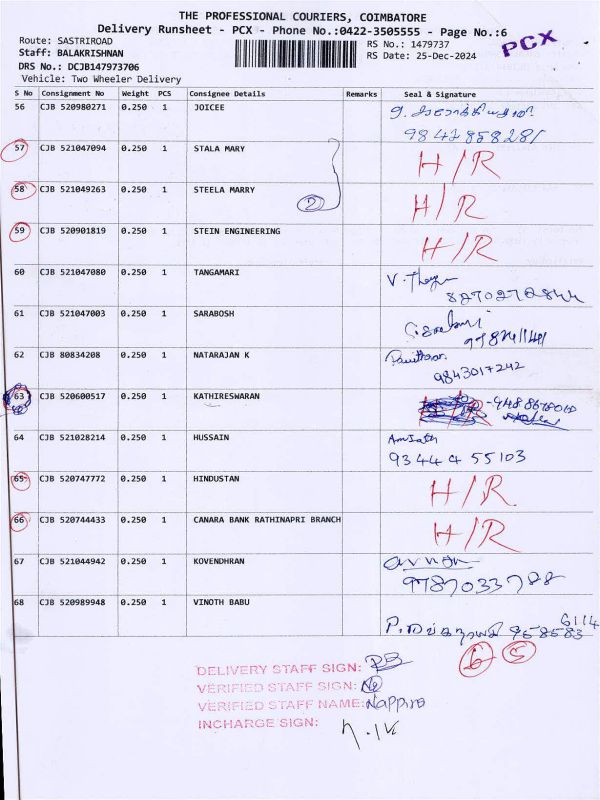 THE PROFESSIONAL COURIERS, COIMBATORE
Delivery Runsheet - PCX - Phone No.:0422-3505555 - Page No.:6
Route: SASTRIROAD
RS No.: 1479737
PCX
Staff: BALAKRISHNAN
RS Date: 25-Dec-2024
DRS No.: DCJB147973706
Vehicle: Two Wheeler Delivery
S No Consignment No Weight PCS Consignee Details Remarks Seal & Signature
56 CJB 520980271 0.250 1 JOICEE
57 CJB 521047094 0.250 1 STALA MARY H/R
58 CJB 521049263 0.250 1 STEELA MARRY 2 H/R
59 CJB 520901819 0.250 1 STEIN ENGINEERING H/R
60 CJB 521047080 0.250 1 TANGAMARI
61 CJB 521047003 0.250 1 SARABOSH
62 CJB 80834208 0.250 1 NATARAJAN K
9843017242
63 CJB 520600517 0.250 1 KATHIRESWARAN
64 CJB 521028214 0.250 1 HUSSAIN
9344455103
65 CJB 520747772 0.250 1 HINDUSTAN H/R
66 CJB 520744433 0.250 1 CANARA BANK RATHINAPRI BRANCH H/R
67 CJB 521044942 0.250 1 KOVENDHRAN
9787033788
68 CJB 520989948 0.250 1 VINOTH BABU
6 5
DELIVERY STAFF SIGN:
VERIFIED STAFF SIGN:
VERIFIED STAFF NAME:
INCHARGE SIGN: